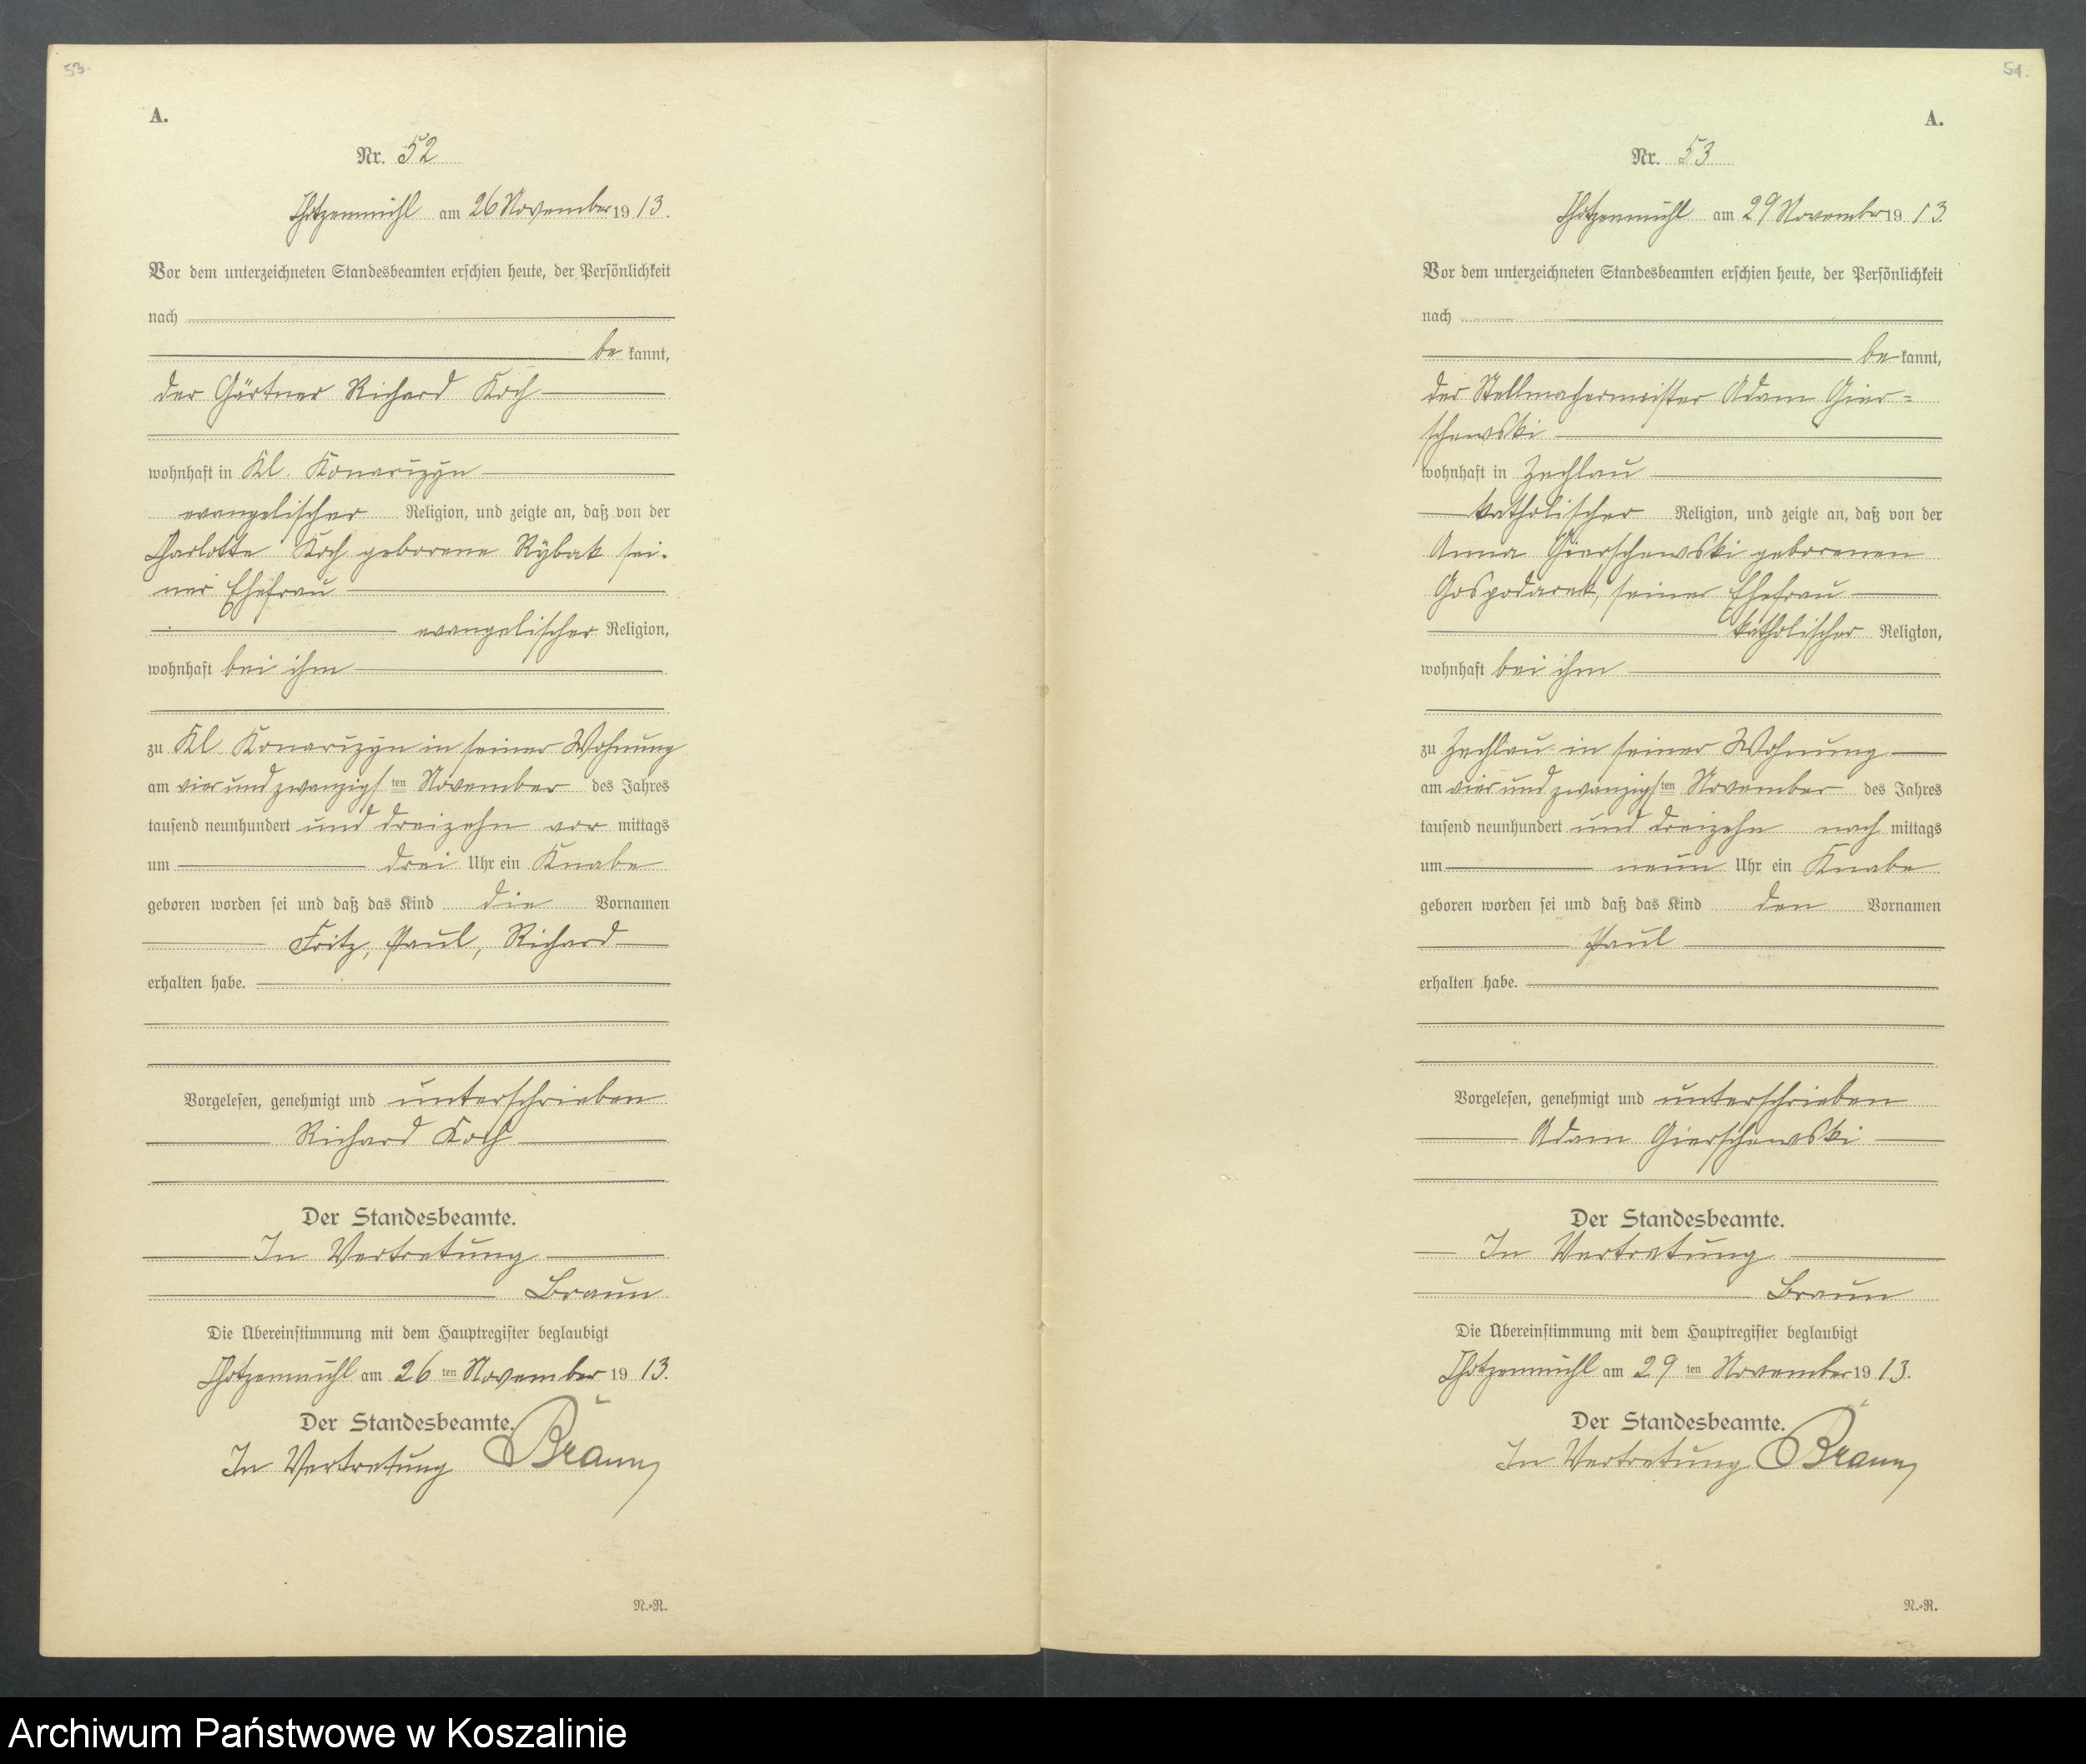 53.
A.
Nr. 52
Chotzenmühl am 26 November 1913.
Vor dem unterzeichneten Standesbeamten erschien heute, der Persönlichkeit
nach
be kannt,
der Gärtner Richard Koch
wohnhaft in Kl. Konarizyn
evangelischer Religion, und zeigte an, daß von der
Charlotte Koch geborene Rybak sei-
ner Ehefrau
evangelischer Religion,
wohnhaft bei ihm
zu Kl Konarizyn in seiner Wohnung
am vierundzwanzigsten November des Jahres
tausend neunhundert und dreizehn vor mittags
um drei Uhr ein Knabe
geboren worden sei und daß das Kind die Vornamen
Fritz, Paul, Richard
erhalten habe.
Vorgelesen, genehmigt und unterschrieben
Richard Koch
Der Standesbeamte.
In Vertretung
Braun
Die Übereinstimmung mit dem Hauptregister beglaubigt
Chotzenmühl am 26 ten November 1913.
Der Standesbeamte.
In Vertretung Braun
N.=R.
54.
A.
Nr. 53
Chotzenmühl am 29 November 1913.
Vor dem unterzeichneten Standesbeamten erschien heute, der Persönlichkeit
nach
be kannt,
der Stellmachermeister Adam Gier=
schewski
wohnhaft in Zechlau
katholischer Religion, und zeigte an, daß von der
Anna Gierschewski geborenen
Gospodarek, seiner Ehefrau
katholischer Religion,
wohnhaft bei ihm
zu Zechlau in seiner Wohnung
am vierundzwanzigsten November des Jahres
tausend neunhundert und dreizehn nach mittags
um neun Uhr ein Knabe
geboren worden sei und daß das Kind den Vornamen
Paul
erhalten habe.
Vorgelesen, genehmigt und unterschrieben
Adam Gierschewski
Der Standesbeamte.
In Vertretung
Braun
Die Übereinstimmung mit dem Hauptregister beglaubigt
Chotzenmühl am 29 ten November 1913.
Der Standesbeamte.
In Vertretung Braun
N.=R.
Archiwum Państwowe w Koszalinie